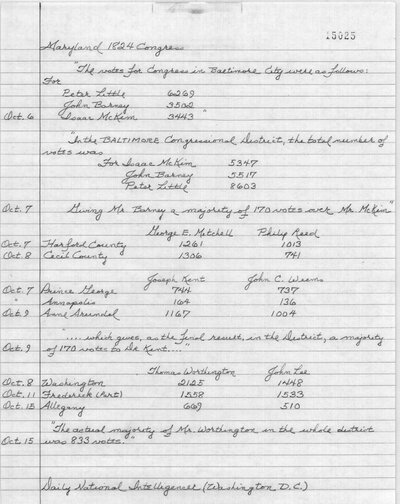 15025
Maryland 1824 Congress
"The votes for Congress in Baltimore City were as follows:
For
Peter Little 6269
John Barney 3502
Oct. 6 Isaac McKim 3443 "
"In the BALTIMORE Congressional District, the total number of
votes was
For Isaac McKim 5347
John Barney 5517
Peter Little 8603
Oct. 7 Giving Mr. Barney a majority of 170 votes over Mr. McKim"
George E. Mitchell Philip Reed
Oct. 7 Harford County 1261 1013
Oct. 8 Cecil County 1306 741
Joseph Kent John C. Weems
Oct. 7 Prince George 744 737
" Annapolis 164 136
Oct. 9 Anne Arundel 1167 1004
".... which gives, as the final result, in the District, a majority
Oct. 9 of 170 votes to Dr. Kent....
Thomas Worthington John Lee
Oct. 8 Washington 2125 1448
Oct. 11 Frederick (Part) 1558 1533
Oct. 15 Allegany 669 510
"The actual majority of Mr. Worthington in the whole district
Oct. 15 was 833 votes."
Daily National Intelligencer (Washington D.C.)